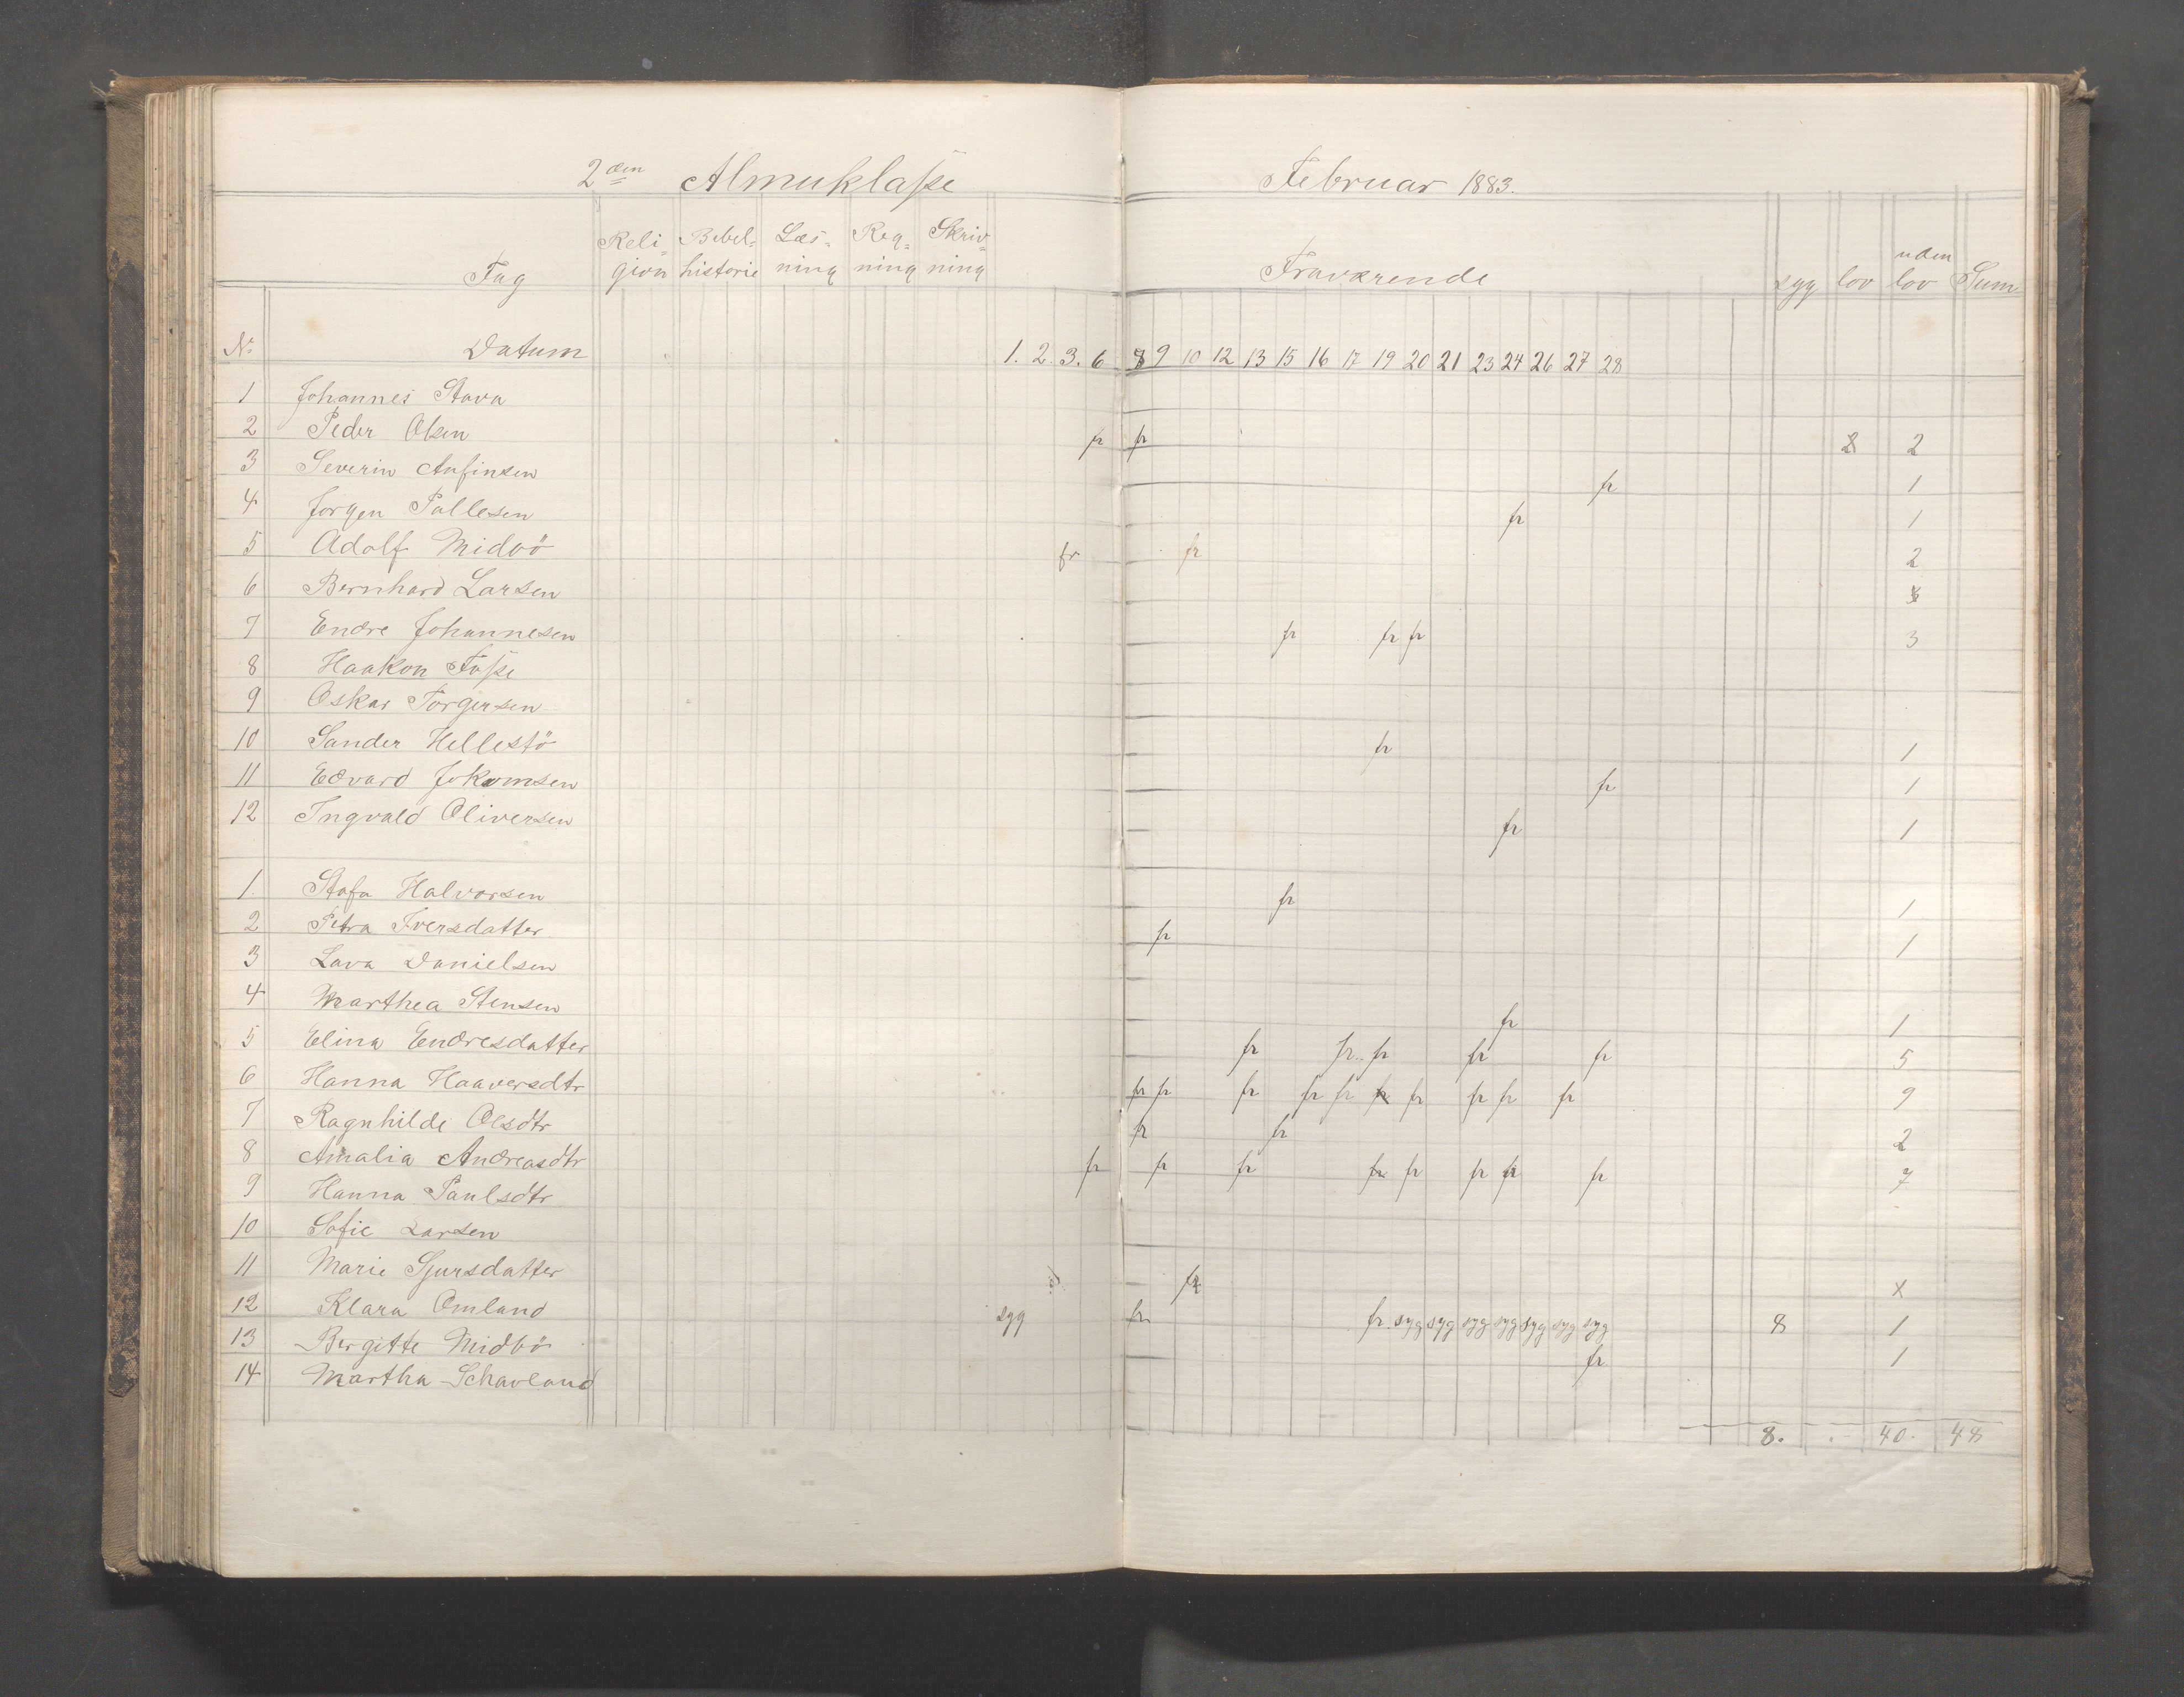 2den Almuklasse Februar 1883.
Fag Religion Bibelhistorie Læsning Regning Skrivning Fraværende syg lov uden lov Sum
No Datum 1. 2. 3. 6 8 9 10 12 13 15 16 17 19 20 21 23 24 26 27 28
1 Johannes Stava
2 Peder Olsen fr fr 2
3 Severin Anfinsen fr 1
4 Jørgen Pallesen fr 1
5 Adolf Midbö fr fr 2
6 Bernhard Larsen
7 Endre Johannesen fr fr fr 3
8 Haakon
9 Oskar Torgersen
10 Sander Hellestö fr 1
11 Edvard Jokumsen fr 1
12 Ingvald Oliversen fr 1
1. Stafa Halvorsen fr 1
2 Petra Iversdatter fr 1
3 Lava Danielsen
4 Marthea Stensen fr 1
5 Elina Endresdatter fr fr fr fr fr 5
6 Hanna Haaversdtr fr fr fr fr fr fr fr fr fr fr 9
7 Ragnhilde Olsdtr fr fr 2
8 Amalia Andreasdtr fr fr fr fr fr fr fr fr 7
9 Hanna Paulsdtr
10 Sofie Larsen
11 Marie Sjursdatter fr x
12 Klara Omland syg fr fr syg syg syg syg syg syg syg 8 1
13 Bergitte Midbö fr 1
14 Martha Schavland
8. 40. 48